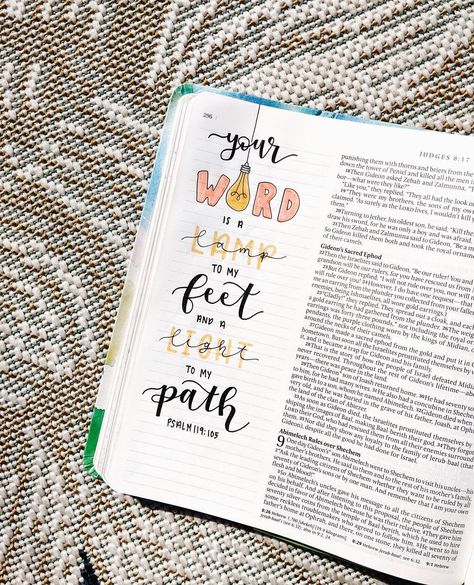 296
JUDGES 8:17
your
WORD
IS A
LAMP
lamp
TO MY
feet
AND A
LIGHT
light
TO MY
path
PSALM 119:105
punishing them with thorns and briers from the
down the tower of Peniel and killed all the men
Then Gideon asked Zebah and Zalmunna,
bor—what were they like?"
"Like you," they replied. "They all had the look of
"They were my brothers, the sons of my own
claimed. "As surely as the LORD lives, I wouldn't kill
Turning to Jether, his oldest son, he said, "Kill them
draw his sword, for he was only a boy and was afraid
Then Zebah and Zalmunna said to Gideon, "Be a
So Gideon killed them both and took the royal ornaments
of their camels.
Gideon's Sacred Ephod
Then the Israelites said to Gideon, "Be our ruler! You and
grandson will be our rulers, for you have rescued us from
will rule over you! However, I do have one request—that
an earring from the plunder you collected
enemies, being Ishmaelites, all wore gold earrings.)
"Gladly!" they replied. They spread out a cloak, and each
a gold earring he had gathered from the plunder.
earrings was forty-three pounds,
pendants, the purple clothing worn by the kings of
around the necks of their camels.
Gideon made a sacred ephod from the gold and put it in
hometown. But soon all the Israelites prostituted themselves by
it, and it became a trap for Gideon and his family.
That is the story of how the people of Israel defeated
never recovered. Throughout the rest of Gideon's lifetime—about
years—there was peace in the land.
Then Gideon son of Joash returned home. He had seventy
to him, for he had many wives. He also had a concubine in Shechem
gave birth to a son, whom he named Abimelech. Gideon died when
and he was buried in the grave of his father, Joash, at Ophrah
the land of the clan of Abiezer.
As soon as Gideon died, the Israelites prostituted themselves by
shiping the images of Baal, making Baal-berith their god.
LORD their God, who had rescued them from all their enemies
Nor did they show any loyalty to the family of Jerub-baal (that
Gideon), despite all the good he had done for Israel.
Abimelech Rules over Shechem
9 One day Gideon's son Abimelech went to Shechem to visit his
mother's brothers. He said to them and to the rest of his mother's family
"Ask the leading citizens of Shechem whether they want to be ruled by all
seventy of Gideon's sons or by one man. And remember that I am your own
flesh and blood!"
So Abimelech's uncles gave his message to all the citizens of Shechem
on his behalf. And after listening to this proposal, the people of Shechem
decided in favor of Abimelech because he was their relative. They gave him
seventy silver coins from the temple of Baal-berith, which he used to hire
some reckless troublemakers who agreed to follow him. He went to his
father's home at Ophrah, and there, on one stone, they killed all seventy of